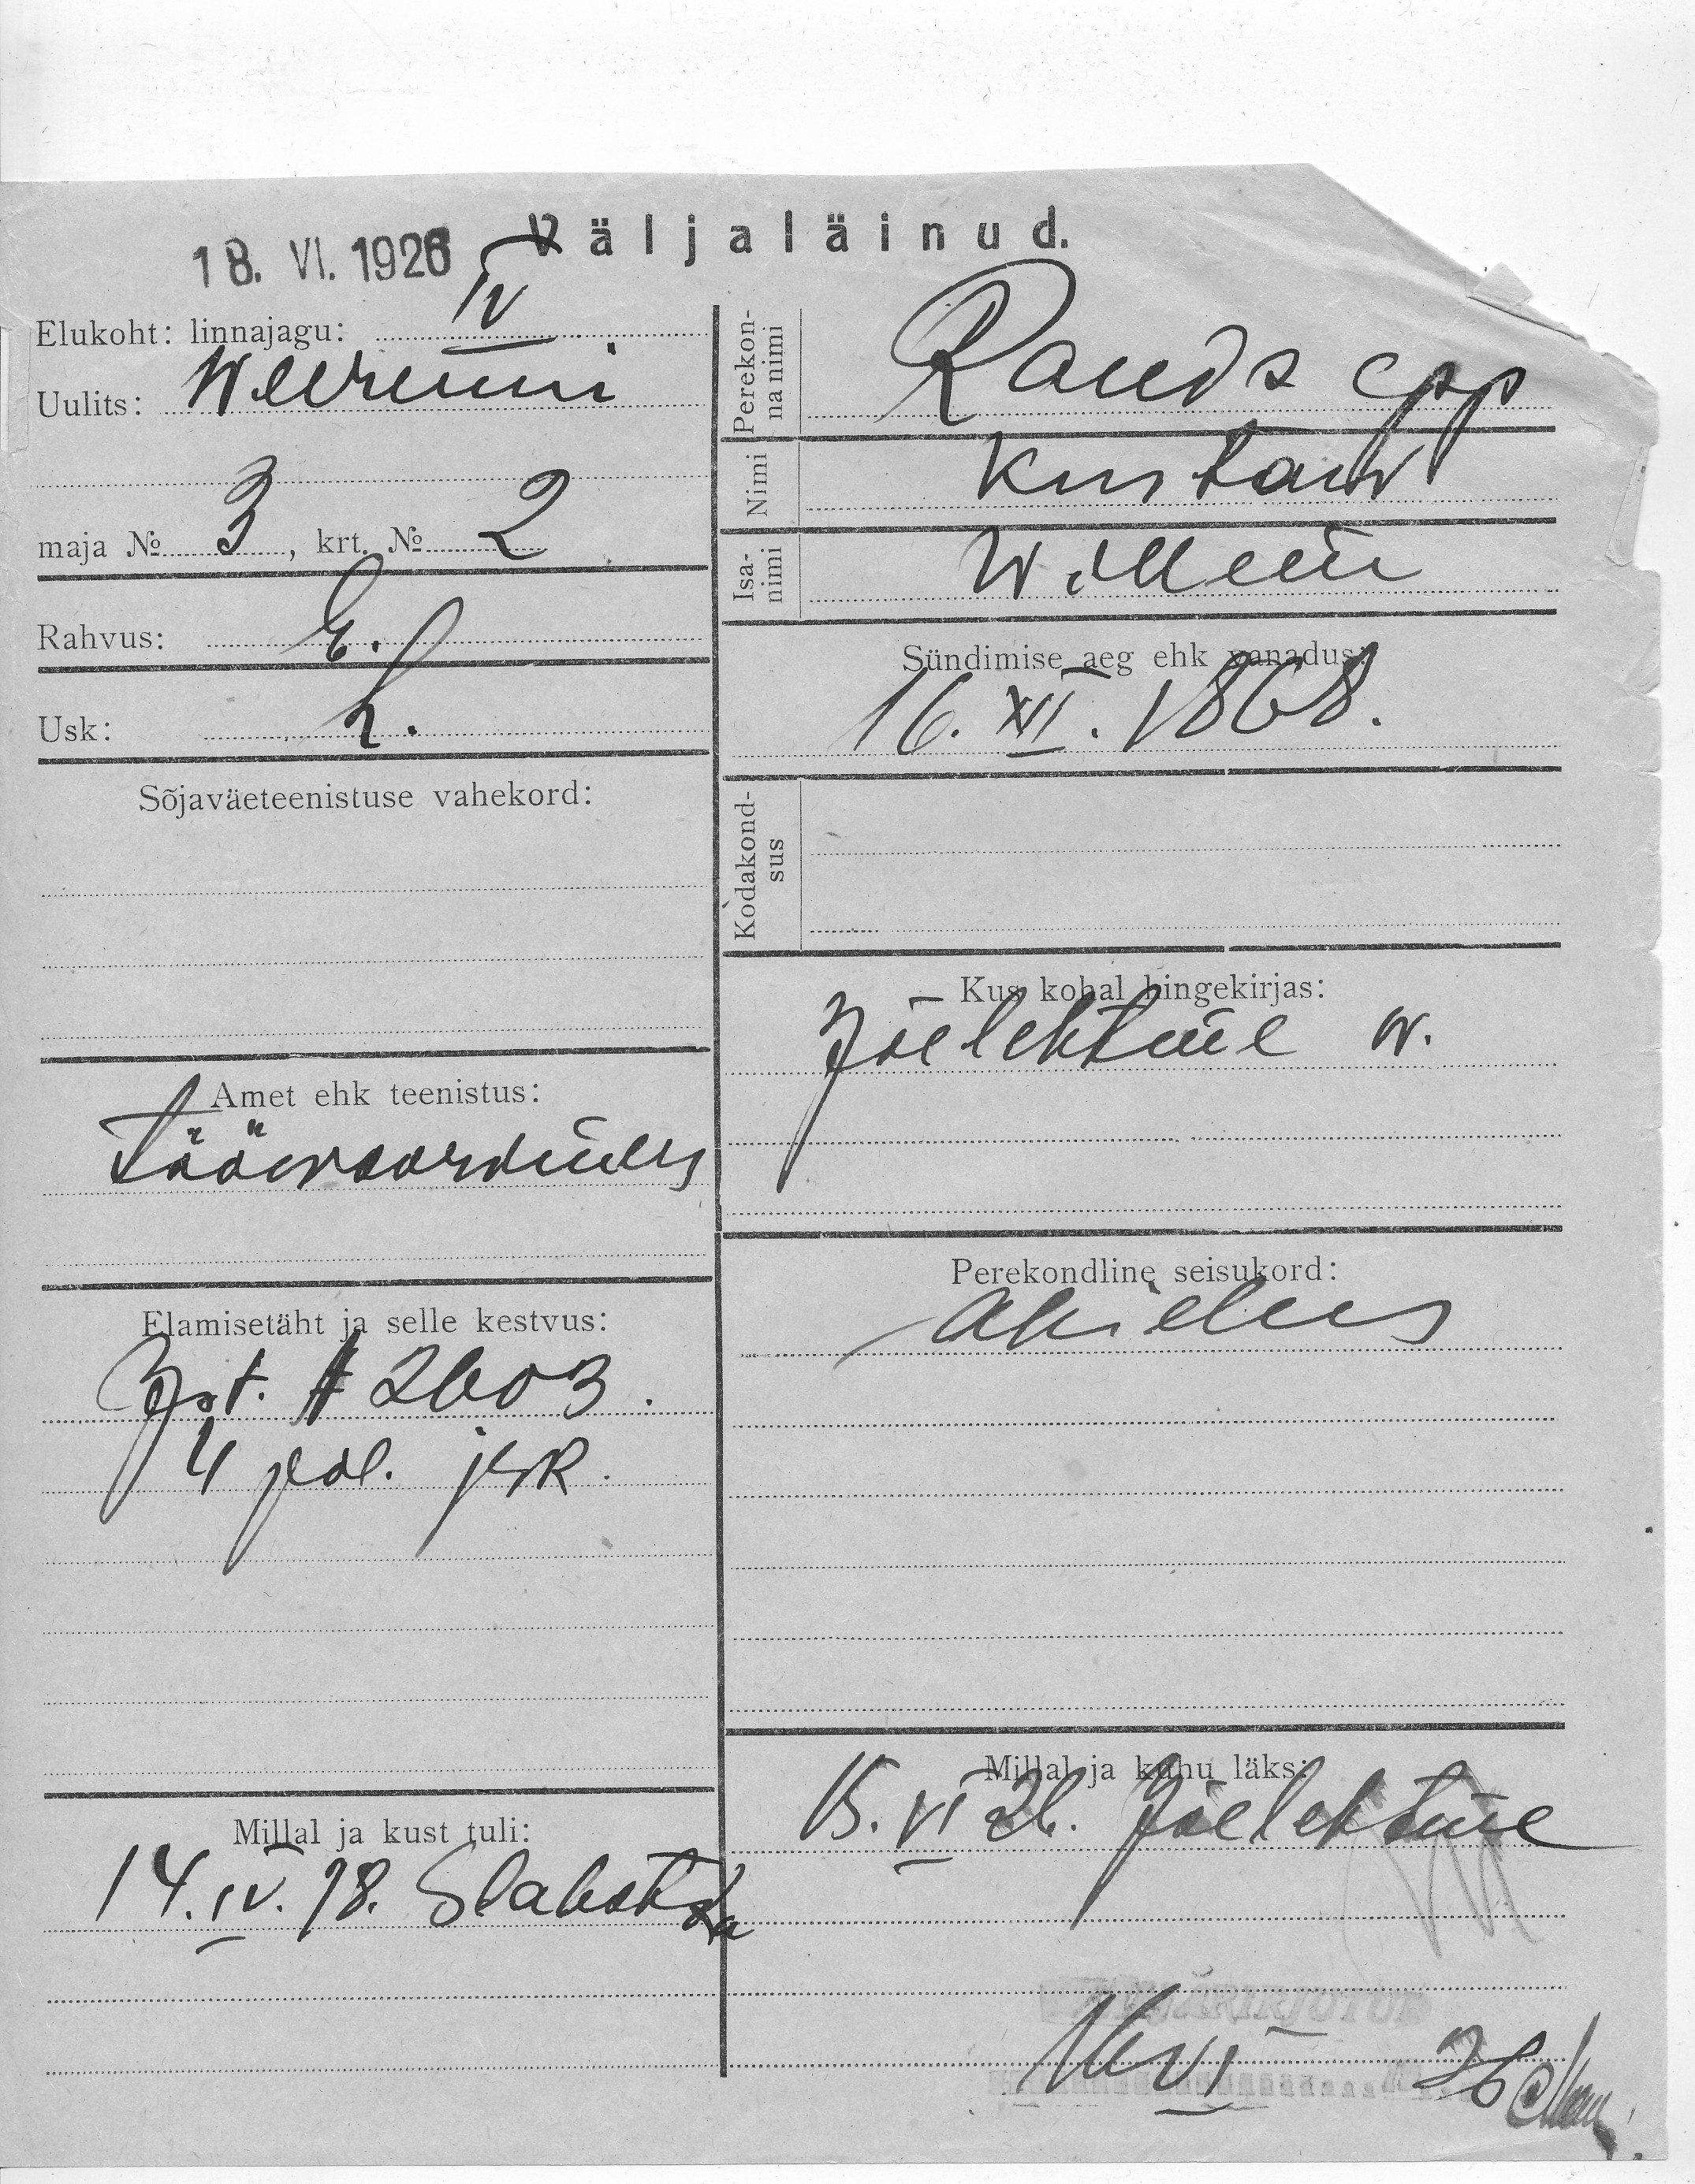 18. VI. 1926 Väljaläinud.
Elukoht: linnajagu: IV
Uulits: Weerenni
maja № 3, krt. № 2
Rahvus: E.
Usk: L.
Sõjaväeteenistuse vahekord:
Amet ehk teenistus:
Töövõordnik
Elamisetäht ja selle kestvus:
Jst. # 2603.
4 pol. jsk.
Millal ja kust tuli:
14. IV. 18.
Perekonna nimi Raudsepp
Nimi Kustaw
Isanimi Willem
Sündimise aeg ehk vanadus:
16. XII. 1868.
Kodakondsus
Kus kohal hingekirjas:
Jõelehtme w.
Perekondline seisukord:
abielus
Millal ja kuhu läks:
15. VI 26. Jõelehtme
16 VI 26